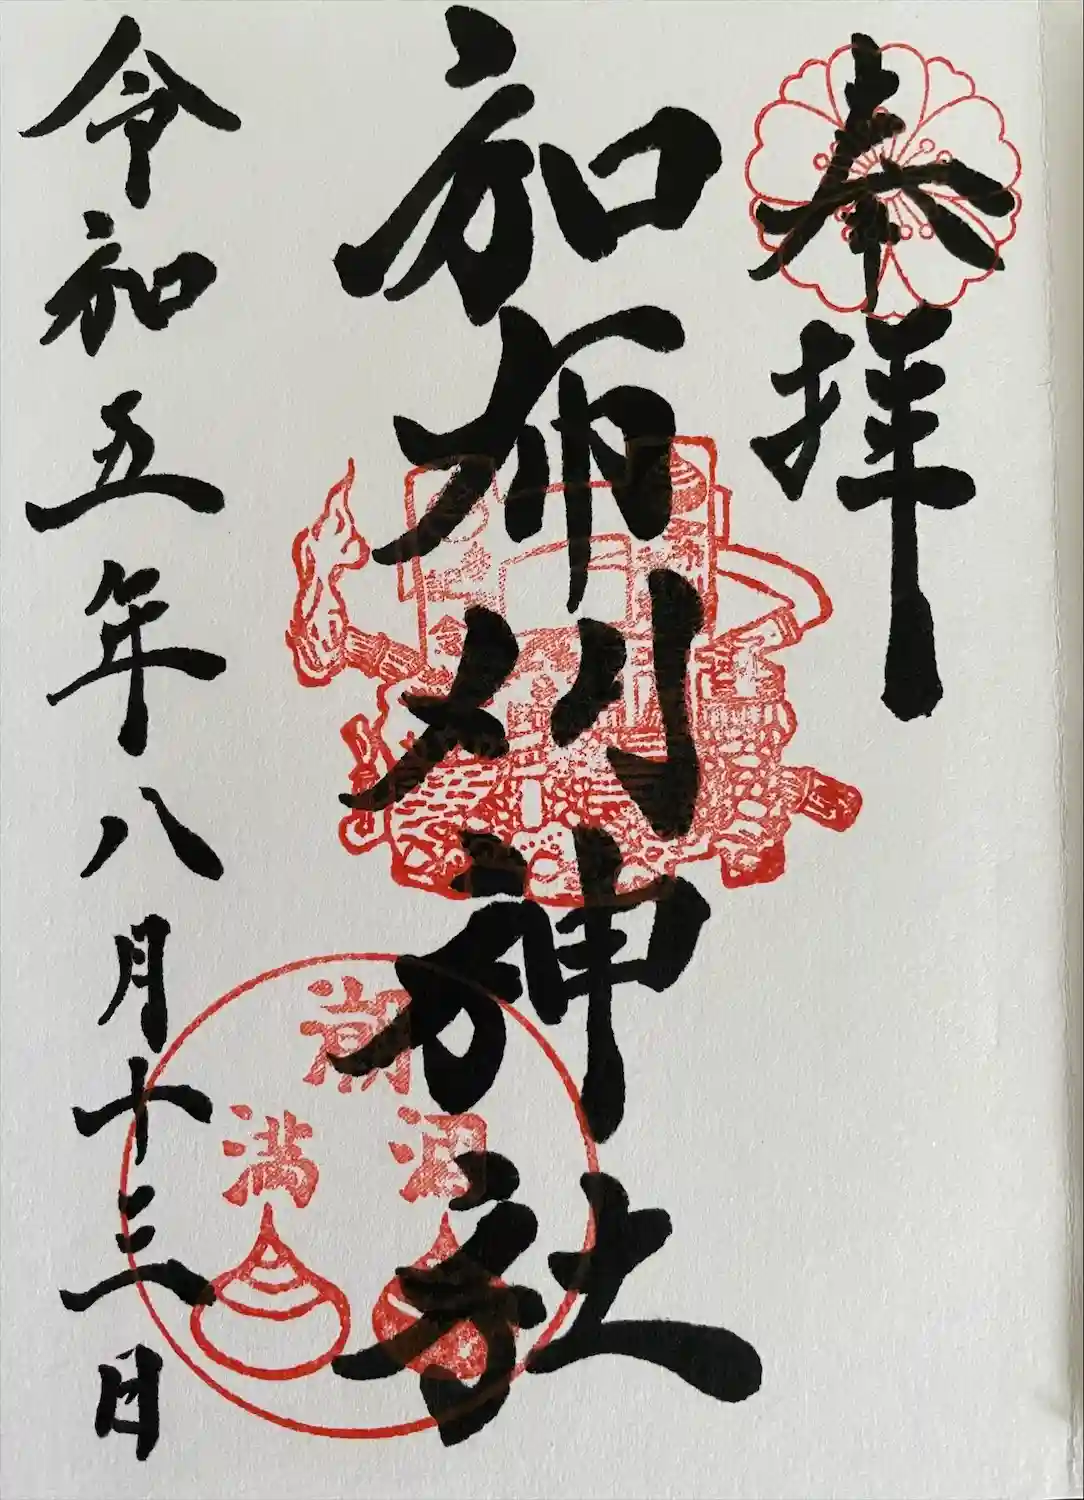 奉拝
加布刈神社
令和五年八月十三日
潮
満 涸